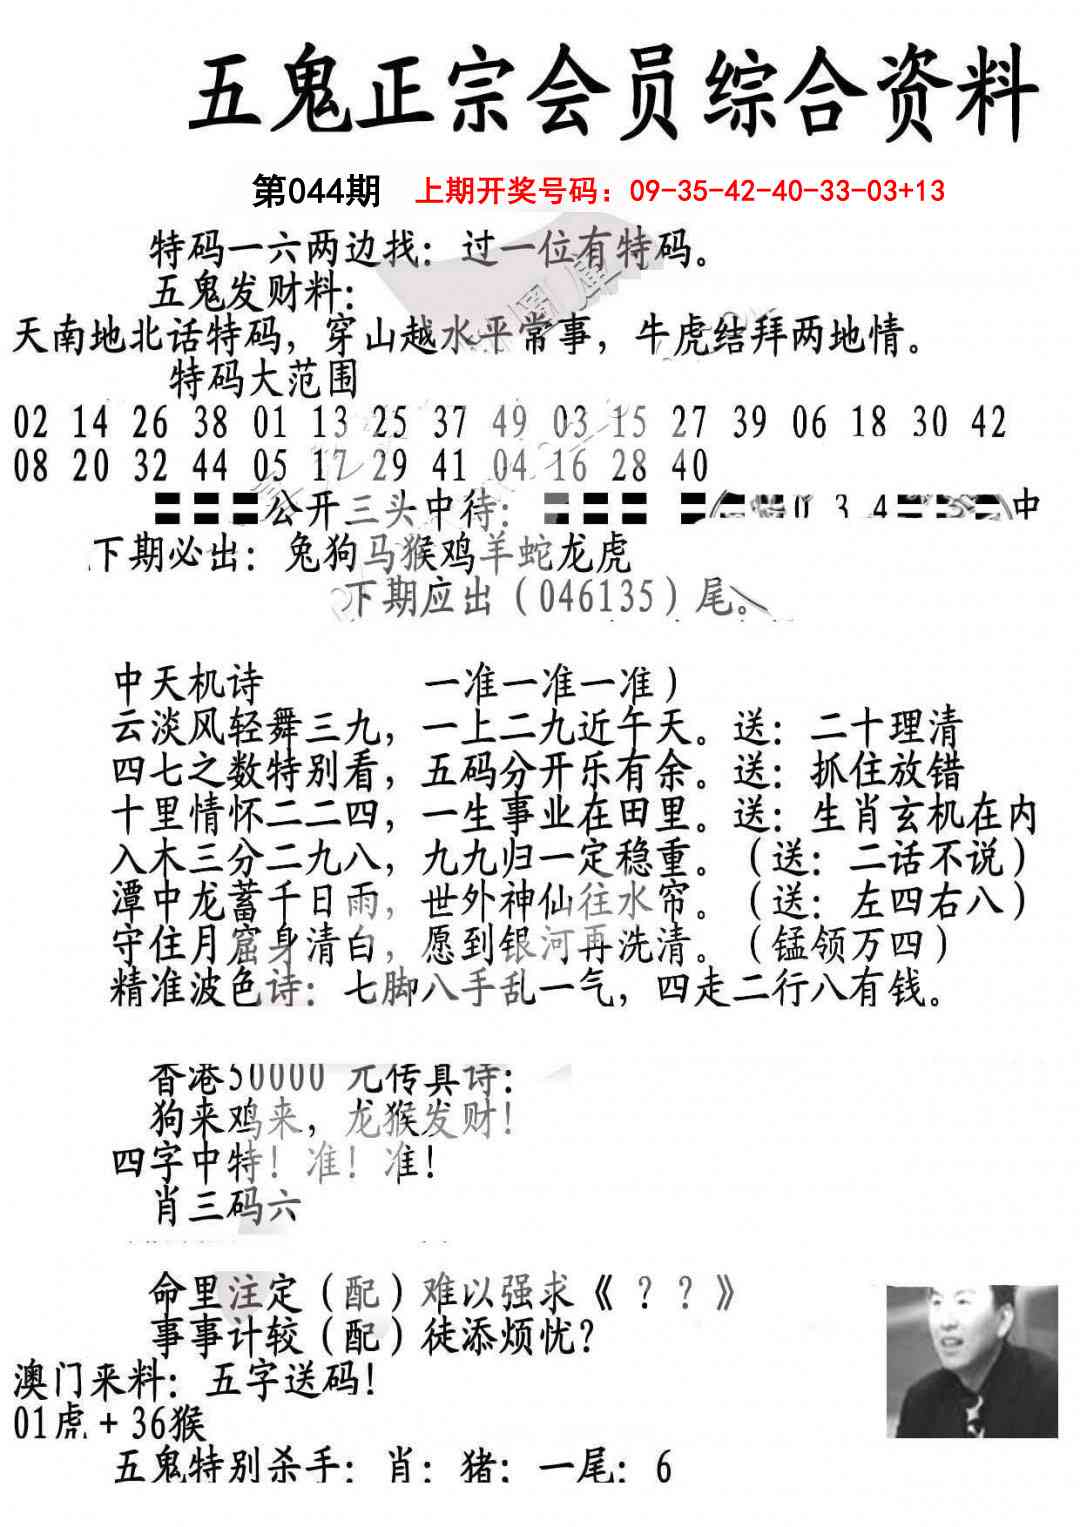 五鬼正宗会员综合资料
第044期 上期开奖号码：09-35-42-40-33-03+13
特码一六两边找：过一位有特码。
五鬼发财料：
天南地北话特码，穿山越水平常事，牛虎结拜两地情。
特码大范围
02 14 26 38 01 13 25 37 49 03 15 27 39 06 18 30 42
08 20 32 44 05 17 29 41 04 16 28 40
公开三头中待： 0 3 4 中
下期必出：兔狗马猴鸡羊蛇龙虎
下期应出（046135）尾。
中天机诗 一准一准一准）
云淡风轻舞三九，一上二九近午天。送：二十理清
四七之数特别看，五码分开乐有余。送：抓住放错
十里情怀二二四，一生事业在田里。送：生肖玄机在内
入木三分二九八，九九归一定稳重。（送：二话不说）
潭中龙蓄千日雨，世外神仙往水帘。（送：左四右八）
守住月窟身清白，愿到银河再洗清。（锰领万四）
精准波色诗：七脚八手乱一气，四走二行八有钱。
香港50000 元传真诗：
狗来鸡来，龙猴发财！
四字中特！准！准！
肖三码六
命里注定（配）难以强求《？？》
事事计较（配）徒添烦忧？
澳门来料：五字送码！
01虎+36猴
五鬼特别杀手：肖：猪：一尾：6